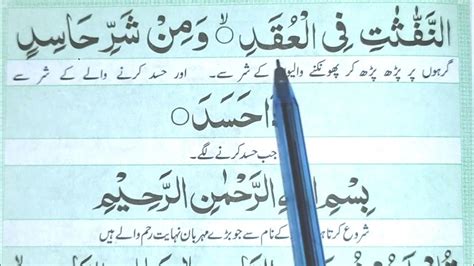 النَّفّٰثٰتِ فِی الْعُقَدِ ۙ وَ مِنْ شَرِّ حَاسِدٍ
گرہوں پر پڑھ پڑھ کر پھونکنے والیوں کے شر سے۔ اور حسد کرنے والے کے شر سے
حَسَدَ
جب حسد کرنے لگے۔
بِسْمِ الرَّحْمٰنِ الرَّحِيْمِ
شروع کرتا کے نام سے جو بڑے مہربان نہایت رحم والے ہیں